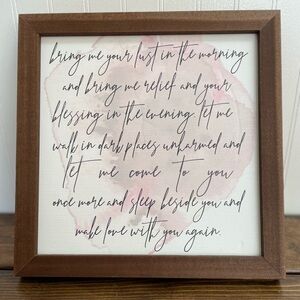 bring me your lust in the morning
and bring me relief and your
blessing in the evening. let me
walk in dark places unharmed and
let me come to you
once more and sleep beside you and
make love with you again.